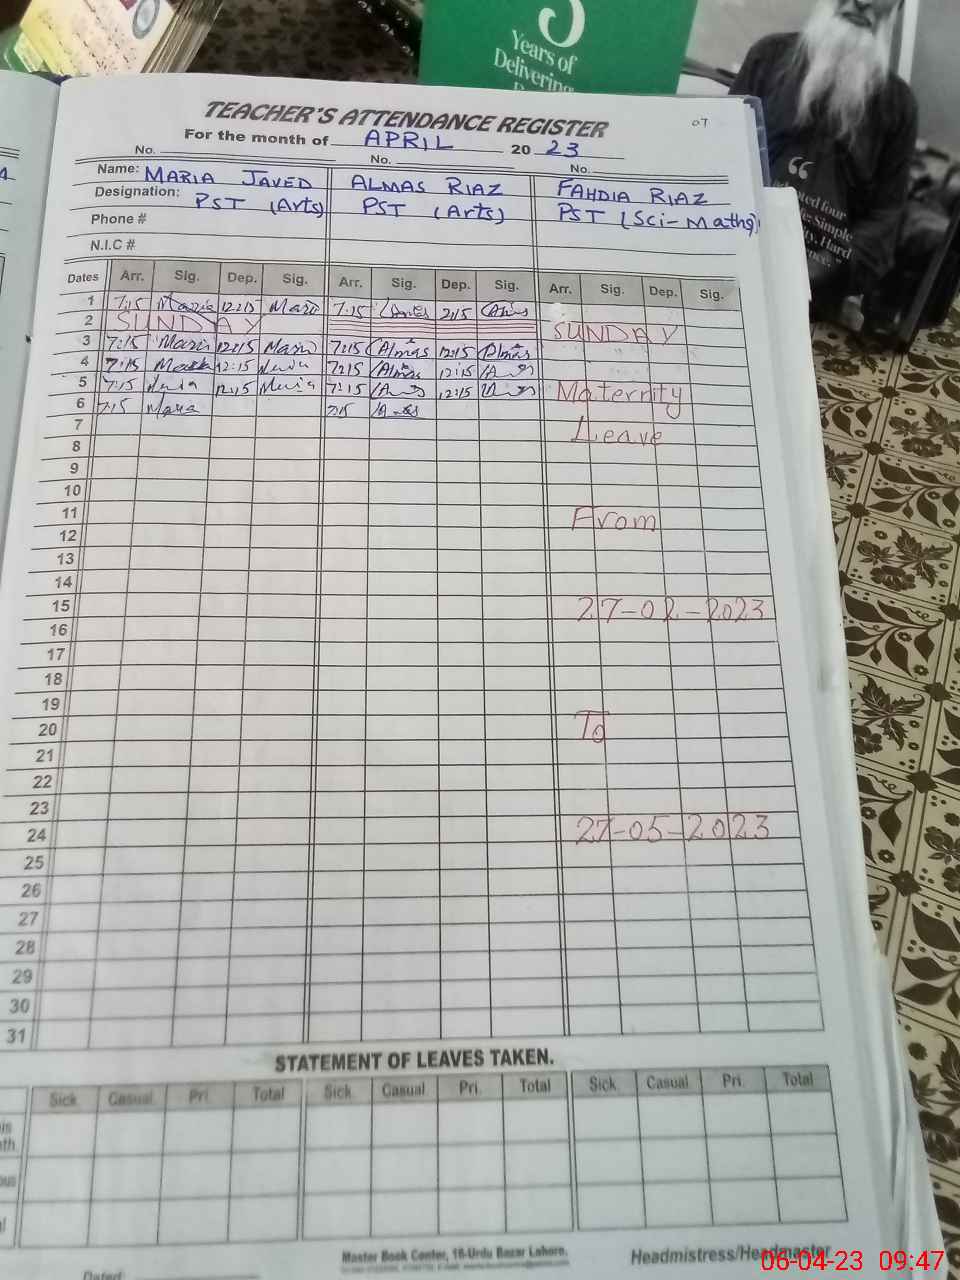 Years of
Delivering
07
TEACHER'S ATTENDANCE REGISTER
For the month of APRIL 20 23
No. No. No.
Name: MARIA JAVED ALMAS RIAZ FAHDIA RIAZ
Designation: PST (Arts) PST (Arts) PST (Sci-Maths)
Phone #
N.I.C #
Dates Arr. Sig. Dep. Sig. Arr. Sig. Dep. Sig. Arr. Sig. Dep. Sig.
1 7:15 Maria 12:15 Maria 7:15 2:15
2 SUNDAY SUNDAY
3 7:15 Maria 12:15 Maria 7:15 Almas 12:15 Almas
4 7:15 12:15 Maria 7:15 Almas 12:15
5 7:15 Maria 12:15 Maria 7:15 12:15 Maternity
6 7:15 Maria 7:15
7 Leave
8
9
10
11 From
12
13
14
15 27-02-2023
16
17
18
19
20 To
21
22
23
24 27-05-2023
25
26
27
28
29
30
31
STATEMENT OF LEAVES TAKEN.
Sick Casual Pri. Total Sick Casual Pri. Total Sick Casual Pri. Total
Master Book Center, 16-Urdu Bazar Lahore.
Headmistress/Headmaster
Dated:
06-04-23 09:47